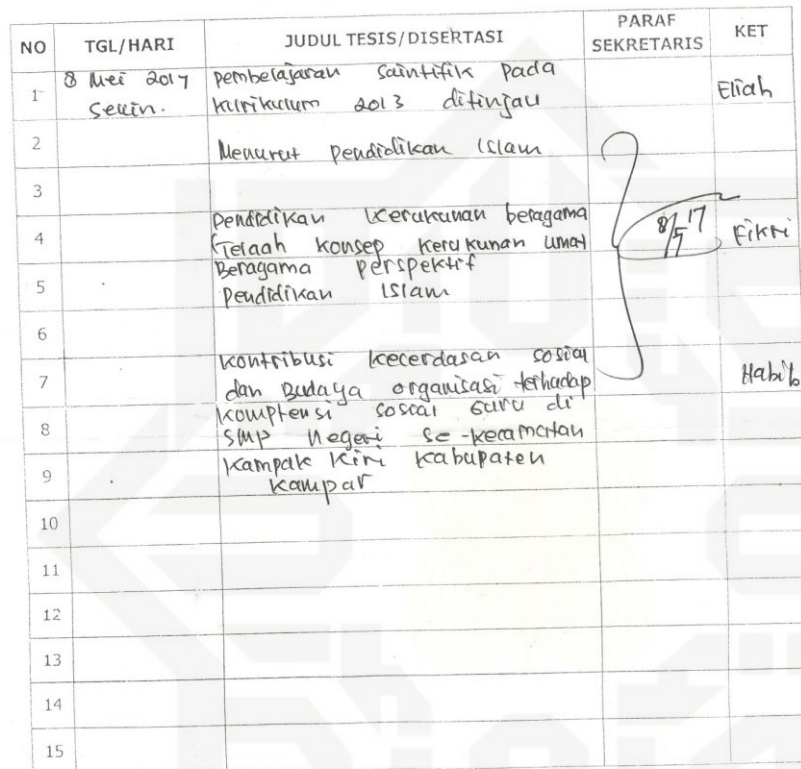 NO TGL/HARI JUDUL TESIS/DISERTASI PARAF SEKRETARIS KET
1 8 Mei 2017 pembelajaran Saintifik pada
Senin. kurikulum 2013 ditinjau Eliah
2 Menurut pendidikan Islam
3
pendidikan kerukunan beragama
4 (Telaah konsep kerukunan umat 8/5 17 Fikri
Beragama perspektif
5 pendidikan Islam
6
kontribusi kecerdasan sosial
7 dan Budaya organisasi terhadap Habib
8 komptensi sosial Guru di
SMP Negeri se-kecamatan
9 Kampak Kiri kabupaten
kampar
10
11
12
13
14
15